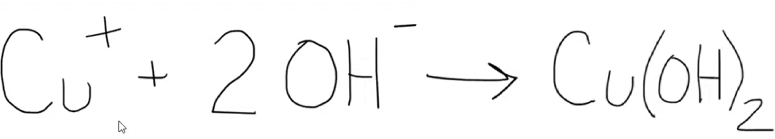 Cu⁺ + 2 OH⁻ → Cu(OH)₂